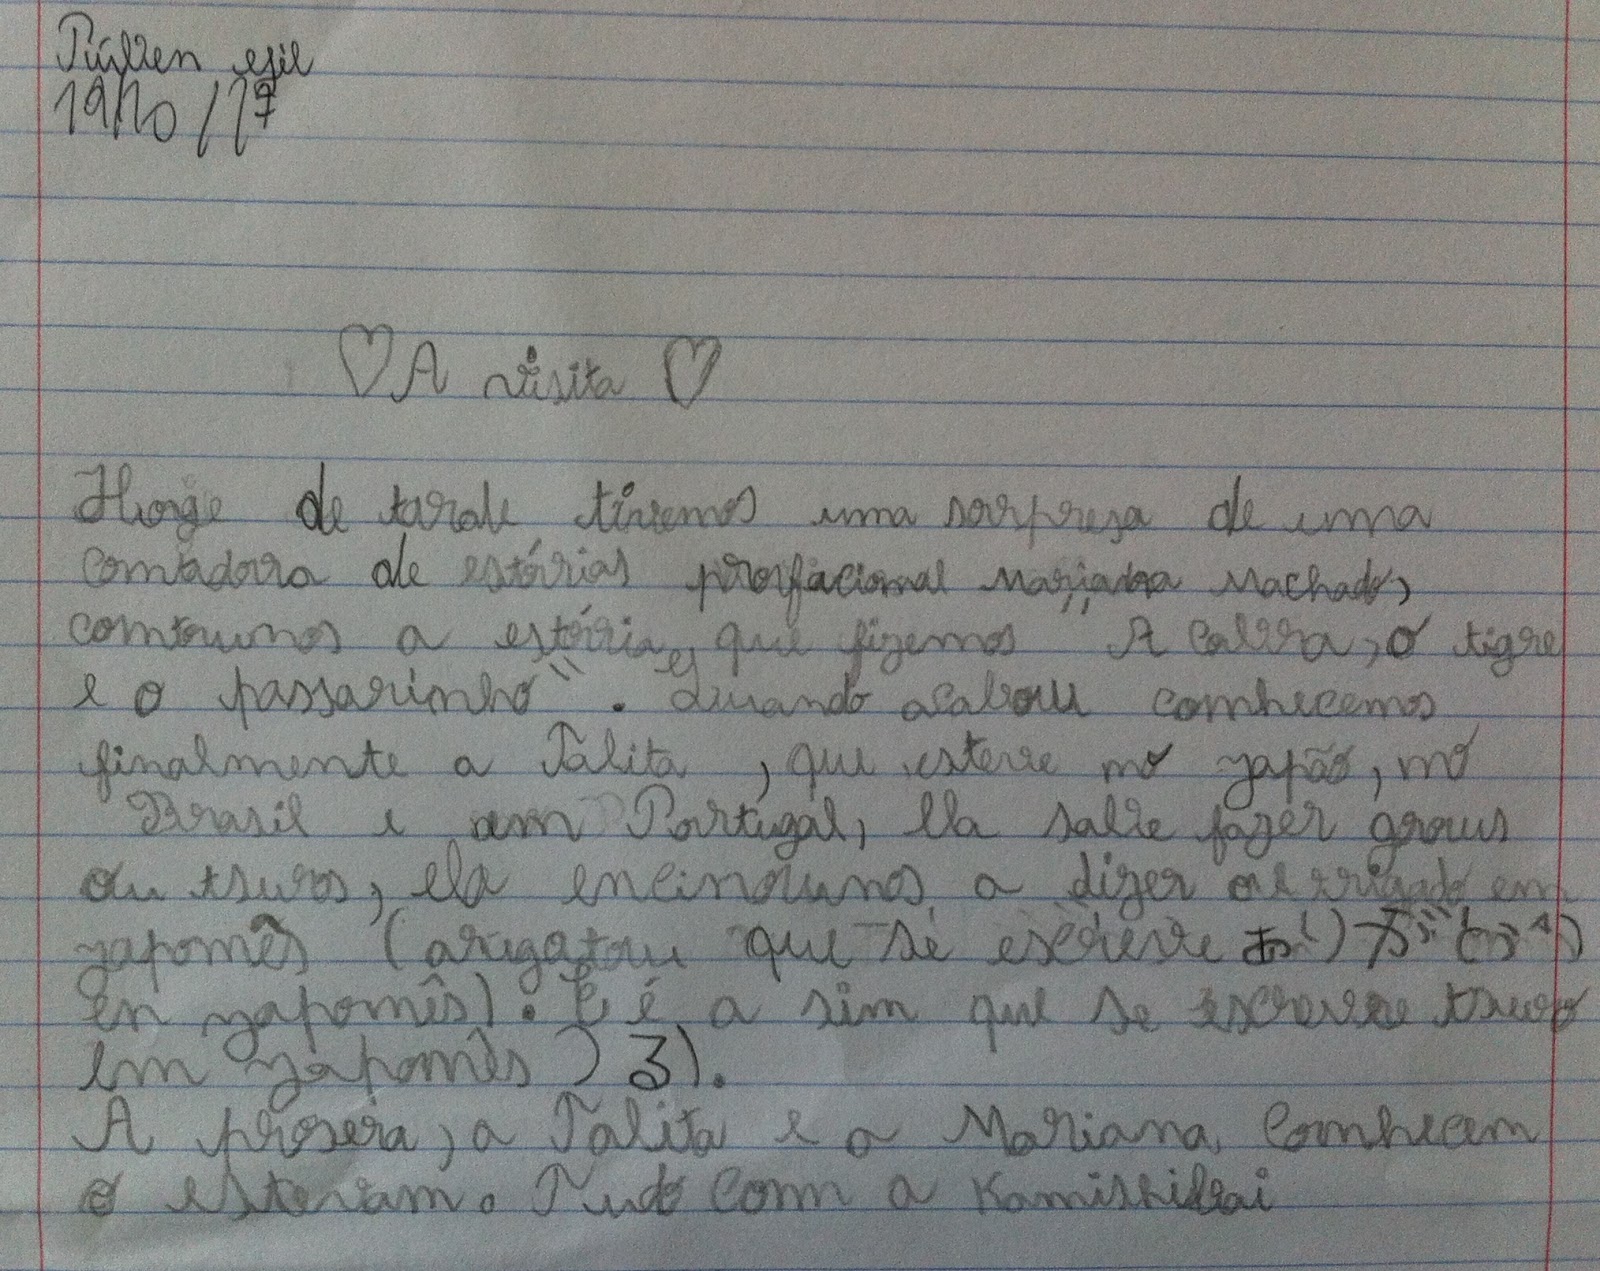 19/10/17
♡ A visita ♡
Honge de tarde tivemos uma sorpresa de uma
contadora de estórias Machado,
contounos a estória, que fizemos "A Cabra, o tigre
e o passarinho". Quando acabou conhecemos
finalmente a Talita, que esteve no yapão, no
Brasil e em Portugal, ela sabe fazer grous
ou tsuros, ela encinounos a dizer obrrigado em
yapomês (arigatou que se escreve ありがとう)
en yapomês). E é a sim que se escreve tsuro
em yapomês つる).
A prosera, a Talita e a Mariana, Comhecem
o estevam. Tudo Com a Kamishibai